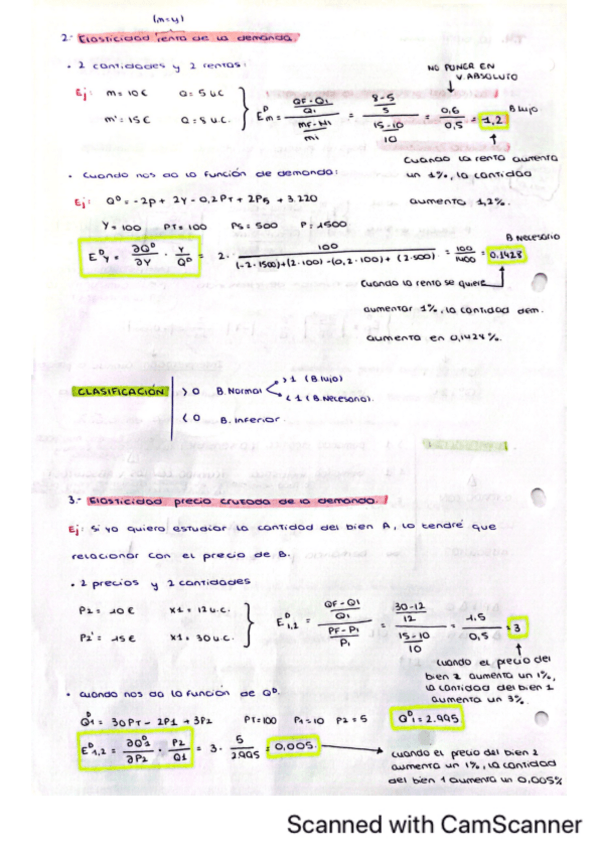 (m=y)
2.- Elasticidad renta de la demanda.
• 2 cantidades y 2 rentas:
NO PONER EN V. ABSOLUTO
Ej: m = 10€ Q = 5 u.c
m' = 15€ Q = 8 u.c.
E^D_m = ((QF - Qi)/Qi)/((mF - Mi)/mi) = ((8-5)/5)/((15-10)/10) = 0,6/0,5 = 1,2 B lujo
Cuando la renta aumenta
un 1%, la cantidad
aumenta 1,2%.
• Cuando nos da la función de demanda:
Ej: Q^D = -2p + 2y - 0,2PT + 2PS + 3.220
Y = 100 PT = 100 PS = 500 P = 1500
E^D_Y = ∂Q^D/∂Y · Y/Q^D = 2 · 100/((-2·1500)+(2·100)-(0,2·100)+(2·500)) = 100/1400 = 0.1428 B necesario
Cuando la renta se quiere
aumentar 1%, la cantidad dem.
aumenta en 0,1424%.
CLASIFICACIÓN > 0 B. Normal > 1 (B lujo)
< 1 (B. Necesario).
< 0 B. Inferior.
3.- Elasticidad precio cruzada de la demanda.
Ej: Si yo quiero estudiar la cantidad del bien A, lo tendré que
relacionar con el precio de B.
• 2 precios y 2 cantidades
P2 = 10€ X1 = 12 u.c.
P2' = 15€ X1 = 30 u.c.
E^D_1,2 = ((QF - Qi)/Qi)/((PF - Pi)/Pi) = ((30-12)/12)/((15-10)/10) = 1,5/0,5 = 3
cuando el precio del
bien 2 aumenta un 1%,
la cantidad del bien 1
aumenta un 3%.
• cuando nos da la función de Q^D.
Q^D_1 = 30PT - 2P1 + 3P2 PT = 100 P1 = 10 P2 = 5 Q^D_1 = 2.995
E^D_1,2 = ∂Q^D_1/∂P2 · P2/Q1 = 3 · 5/2.995 = 0,005.
cuando el precio del bien 2
aumenta un 1%, la cantidad
del bien 1 aumenta un 0,005%
Scanned with CamScanner